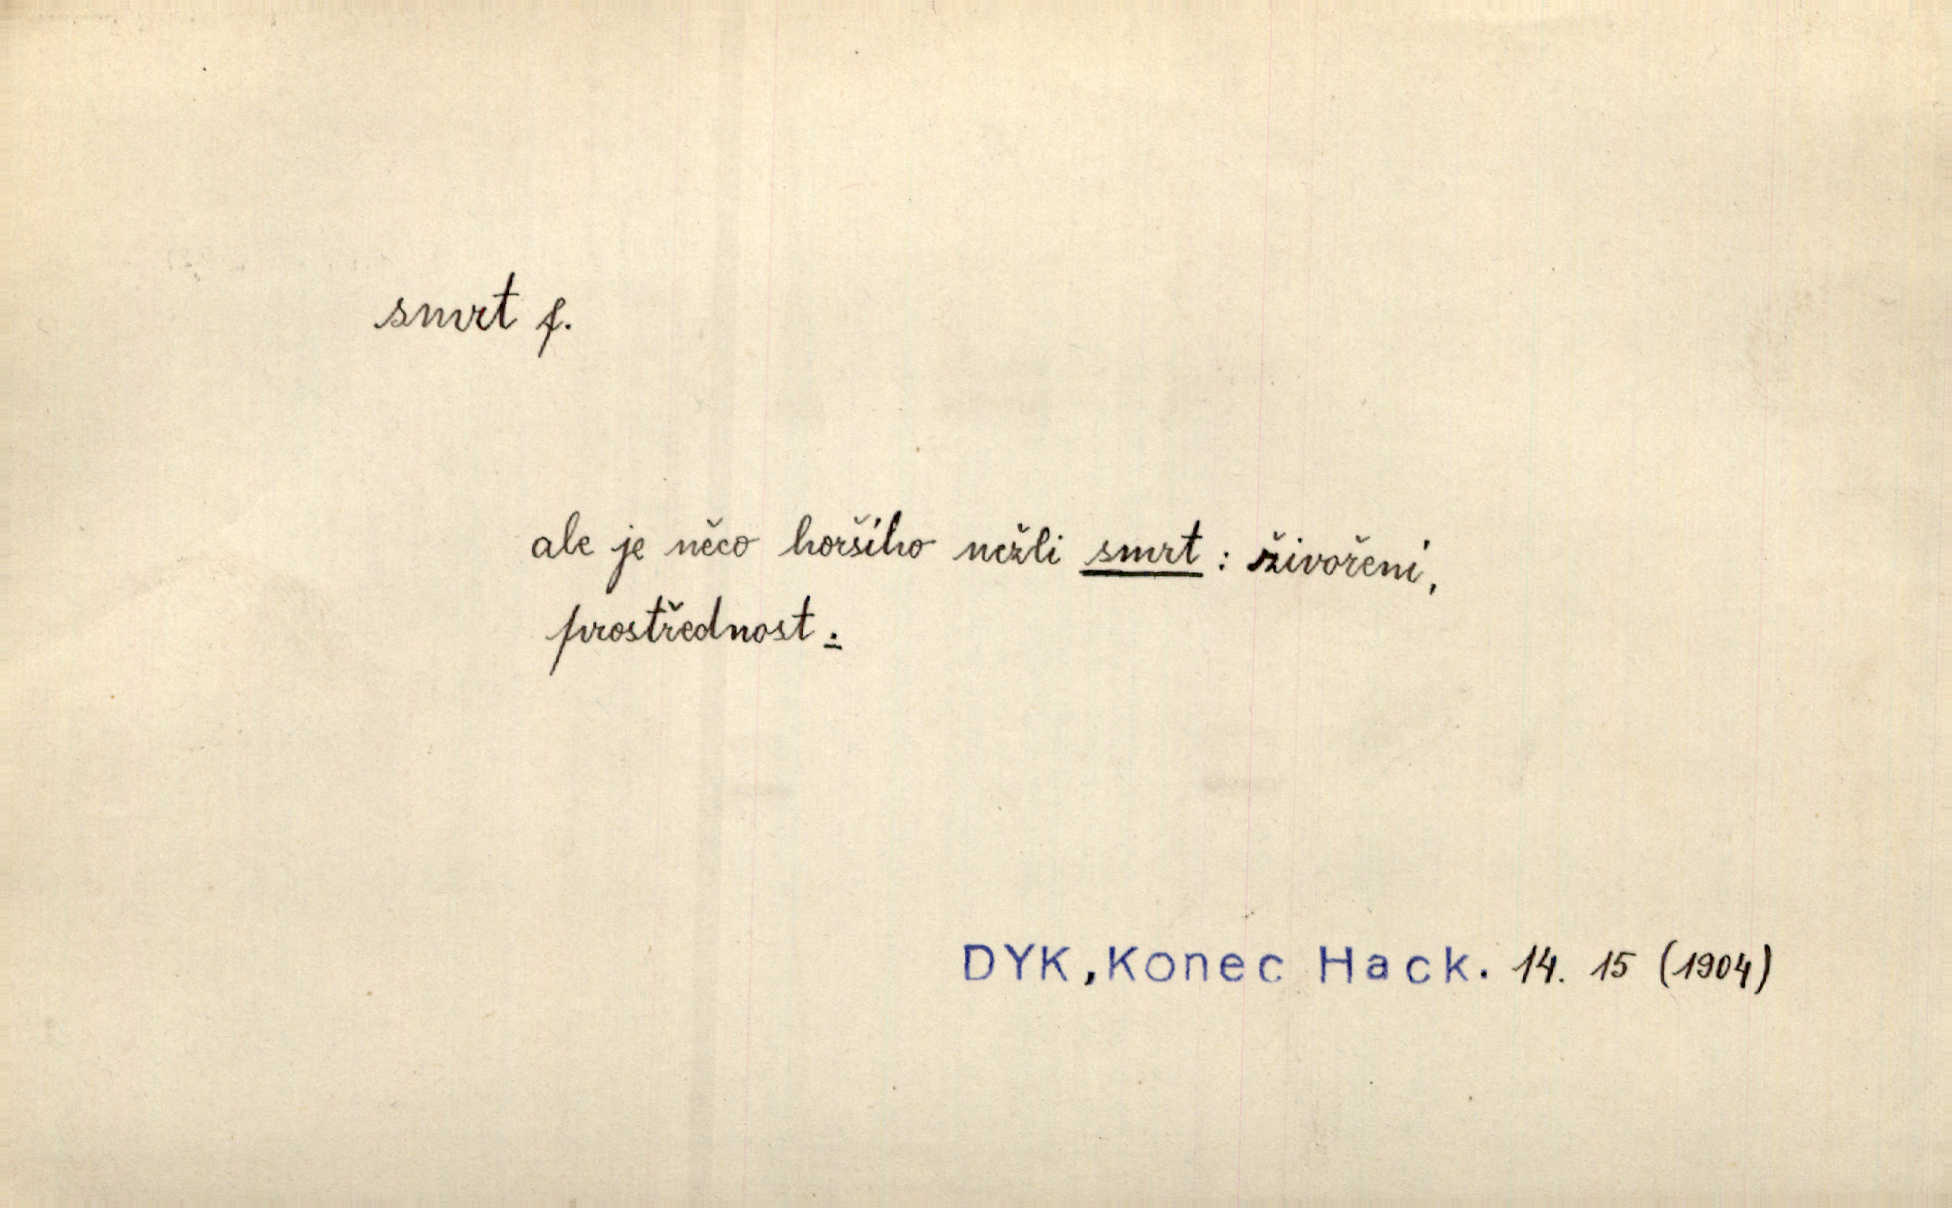 smrt f.
ale je něco horšího nežli smrt : živoření,
prostřednost.
DYK, Konec Hack. 14. 15 (1904)